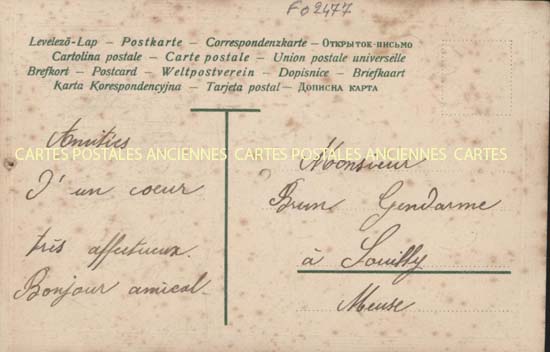 FO2477
Levelező-Lap – Postkarte – Correspondenzkarte – Открыток-письмо
Cartolina postale – Carte postale – Union postale universelle
Brefkort – Postcard – Weltpostverein – Dopisnice – Briefkaart
Karta Korespondencyjna – Tarjeta postal – Дописна карта
Amitiés
CARTES POSTALES ANCIENNES CARTES POSTALES ANCIENNES CARTES
D'un coeur
très affectueux.
Bonjour amical
Monsieur
Brun Gendarme
à Souilly
Meuse